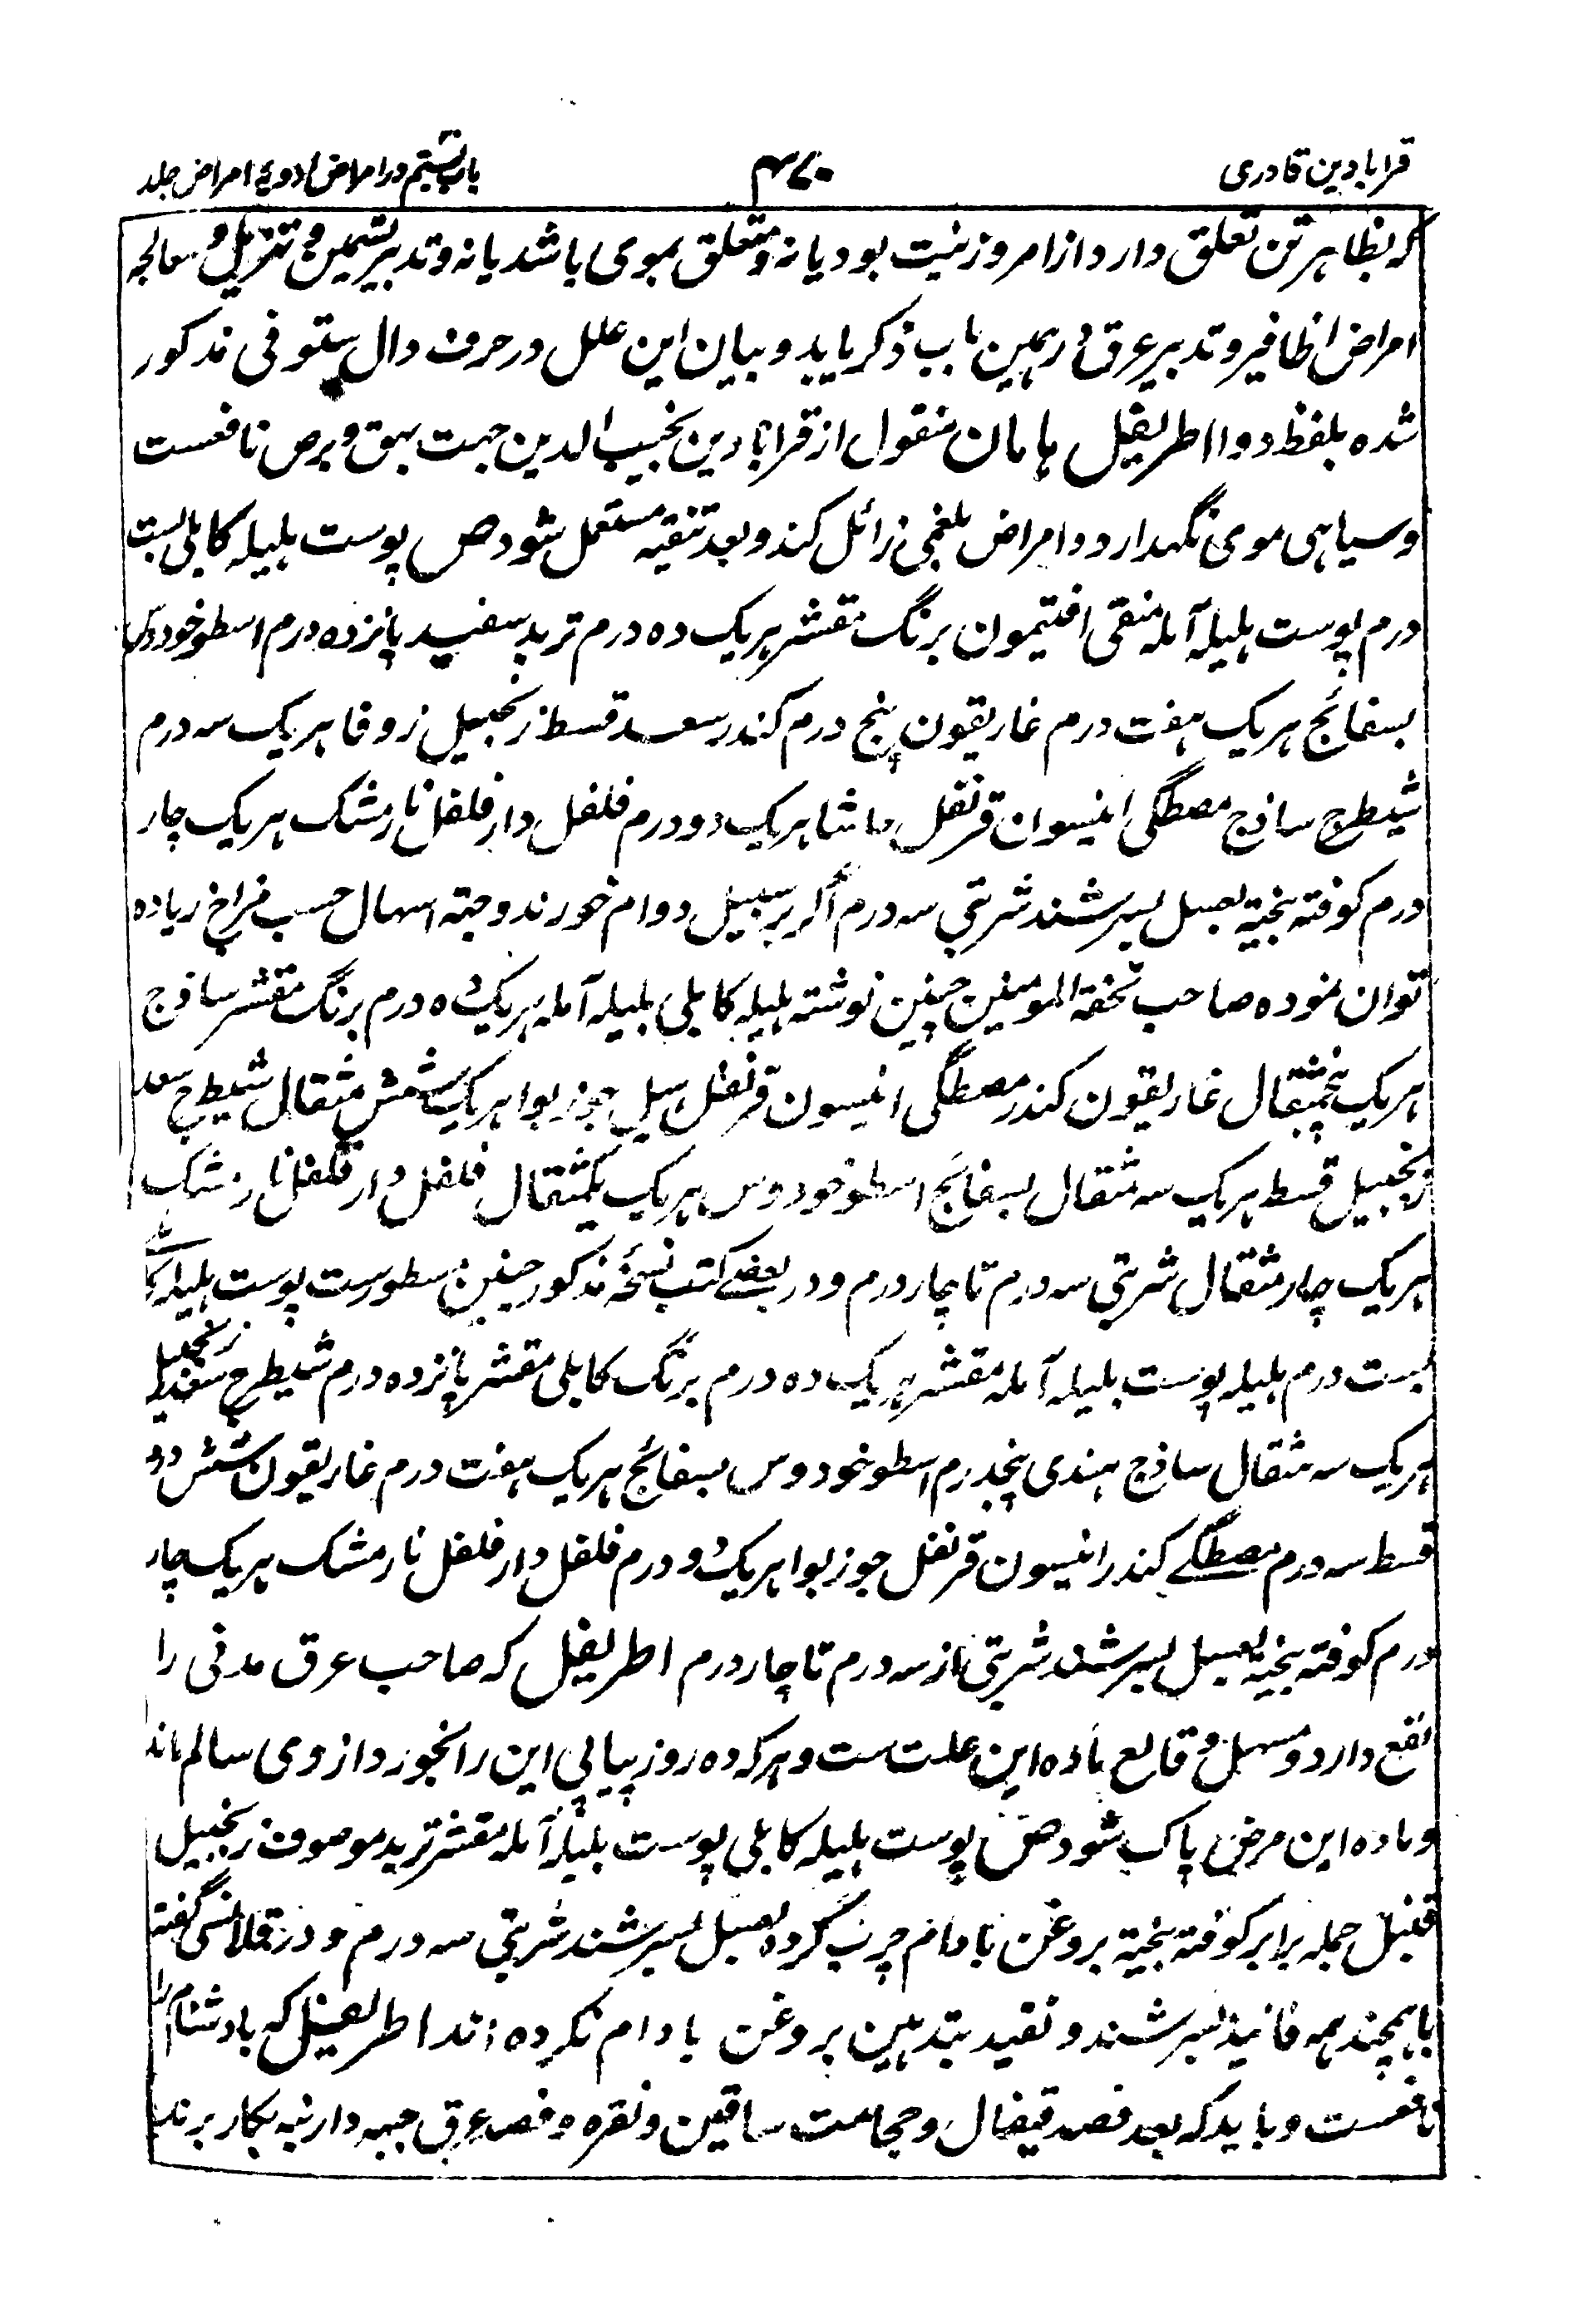 قرابادین قادری
۴۷۰
باب بستم در امراض ادویهٔ امراض جلد
که بظاهر تن تعلق دارد از امور زینت بود یا نه و متعلق بموی باشد یا نه و تدبیر تسمین و تهزیل و معالجه
امراض اظافیر و تدبیر عرق درهمین باب ذکر یابد و بیان این علل در حرف دال ستوفی مذکور
شده بلفظ دوا اطریفل هامان منقول از قرابادین نجیب الدین جهت بهق و برص نافعست
و سیاهی موی نگهدارد و امراض بلغمی زائل کند و بعد تنقیه مستعمل شود ص پوست هلیله کابلی بست
درم پوست بلیله آمله منقی افتیمون برنگ مقشر هریک ده درم تربد سفید پانزده درم اسطوخودوس
بسفائج هریک هفت درم غاریقون پنج درم کندر سعد قسط زنجبیل زوفا هریک سه درم
شیطرج ساذج مصطگی انیسون قرنفل حاشا هریک دو درم فلفل دارفلفل نارمشک هریک چار
درم کوفته بیخته بعسل بسرشند شربتی سه درم اگر بر سبیل دوام خورند و جهته اسهال حسب مزاج زیاده
توان نمود ه صاحب تحفة المومنین چنین نوشته هلیله کابلی بلیله آمله هریک ده درم برنگ مقشر ساذج
هریک پنجمثقال غاریقون کندر مصطگی انیسون قرنفل هیل جوزبوا هریک شش مثقال شیطرج سعد
زنجبیل قسط هریک سه مثقال بسفائج اسطوخودوس هریک یکمثقال فلفل دارفلفل نارمشک
هریک چار مثقال شربتی سه درم تا چار درم و در بعضے کتب نسخهٔ مذکور چنین سطورست پوست هلیله کابلی
بست درم هلیله پوست بلیله آمله مقشر هریک ده درم برنگ کابلی مقشر پانزده درم شیطرج سعد زنجبیل
هریک سه مثقال ساذج هندی پنجدرم اسطوخودوس بسفائج هریک هفت درم غاریقون شش درم
قسط سه درم مصطگے کندر انیسون قرنفل جوزبوا هریک دو درم فلفل دارفلفل نارمشک هریک چار
درم کوفته بیخته بعسل بسرشند شربتی از سه درم تا چار درم اطریفل که صاحب عرق مدنی را
نفع دارد و مسهل و قالع ماده این علت ست و هرکه ده روز پیاپی این را بخورد از وی سالم ماند
و ماده این مرض پاک شود ص پوست هلیله کابلی پوست بلیله آمله مقشر تربد موصوف زنجبیل
قنبیل جمله برابر کوفته بیخته بروغن بادام چرب کرده بعسل بسرشند شربتی سه درم و در قلانسی گفته
باهمچند همه فانیذ بسرشند و تقیید بتدهین بروغن بادام نکرده اند اطریفل که بادشنام را
نافعست و باید که بعد فصد قیفال و حجامت ساقین و نقره و فصد عرق جبهه و ارنبه بکار برند